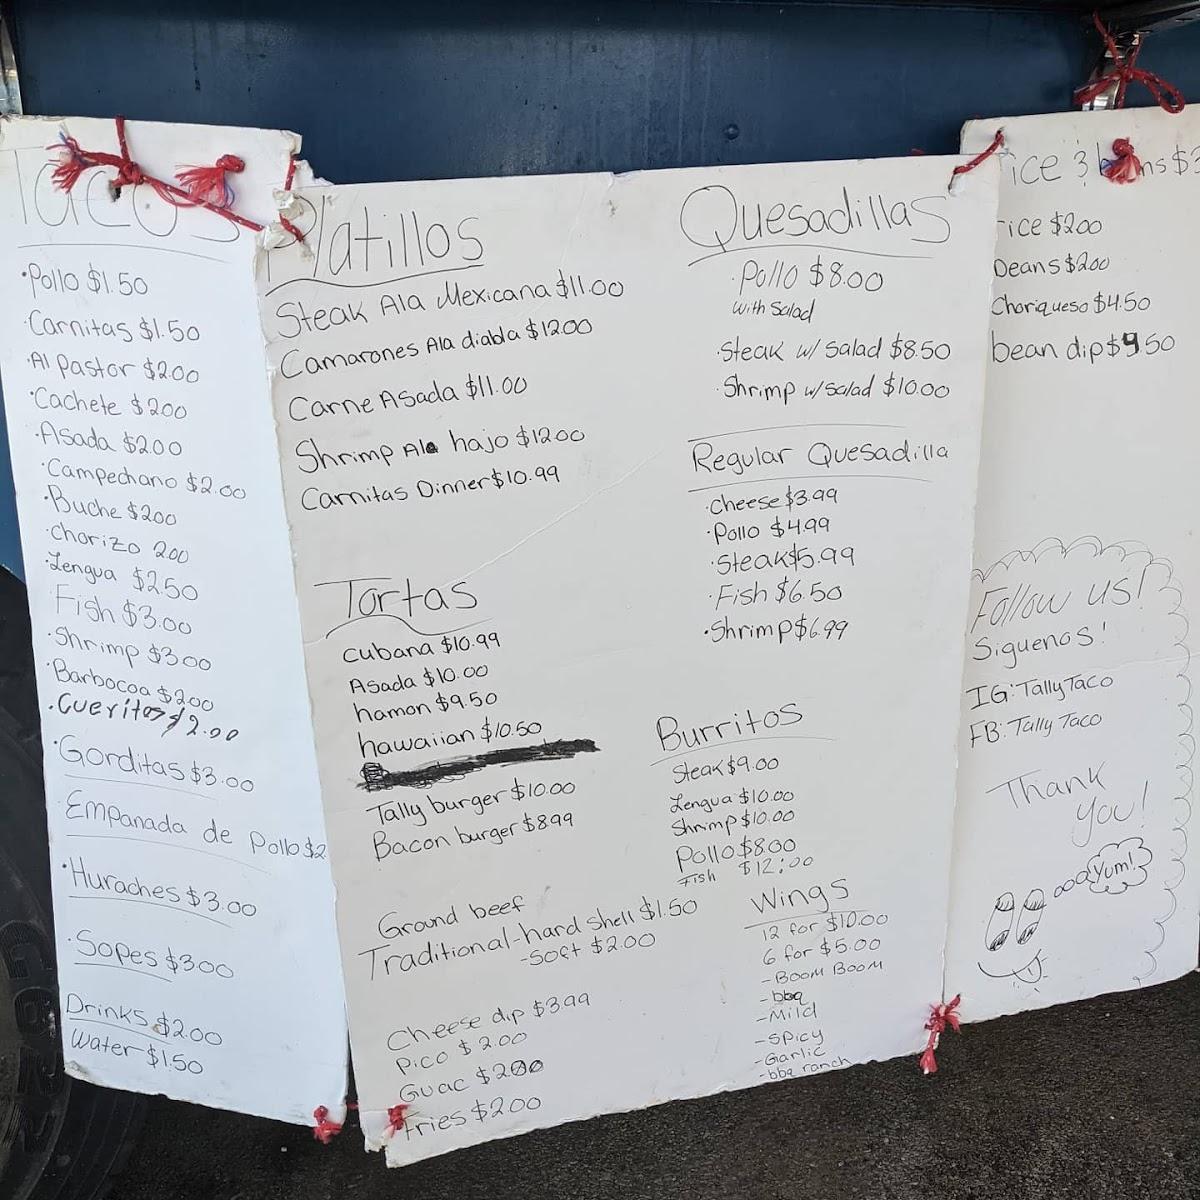 Tacos
·Pollo $1.50
·Carnitas $1.50
·Al Pastor $2.00
·Cachete $2.00
·Asada $2.00
·Campechano $2.00
·Buche $2.00
·Chorizo 2.00
·Lengua $2.50
Fish $3.00
·Shrimp $3.00
·Barbocoa $2.00
·Cueritos $2.00
·Gorditas $3.00
Empanada de pollo $2
·Huraches $3.00
·Sopes $3.00
Drinks $2.00
Water $1.50
Platillos
Steak Ala Mexicana $11.00
Camarones Ala diabla $12.00
Carne Asada $11.00
Shrimp Ala hajo $12.00
Carnitas Dinner $10.99
Tortas
cubana $10.99
Asada $10.00
hamon $9.50
hawaiian $10.50
Tally burger $10.00
Bacon burger $8.99
Ground beef
Traditional-hard Shell $1.50
-Soft $2.00
Cheese dip $3.99
Pico $2.00
Guac $2.00
Fries $2.00
Quesadillas
·Pollo $8.00
with Salad
·Steak w/ Salad $8.50
·Shrimp w/salad $10.00
Regular Quesadilla
·Cheese $3.99
·Pollo $4.99
·Steak $5.99
·Fish $6.50
·Shrimp $6.99
Burritos
Steak $9.00
Lengua $10.00
Shrimp $10.00
Pollo $8.00
Fish $12:00
Wings
12 for $10.00
6 for $5.00
-BOOM BOOM
-bbq
-Mild
-SPicy
-Garlic
-bbq ranch
ice $3
ice $2.00
Beans $2.00
Choriqueso $4.50
bean dip $9.50
Follow us!
Siguenos!
IG: TallyTaco
FB: Tally Taco
Thank
you!
Yum!